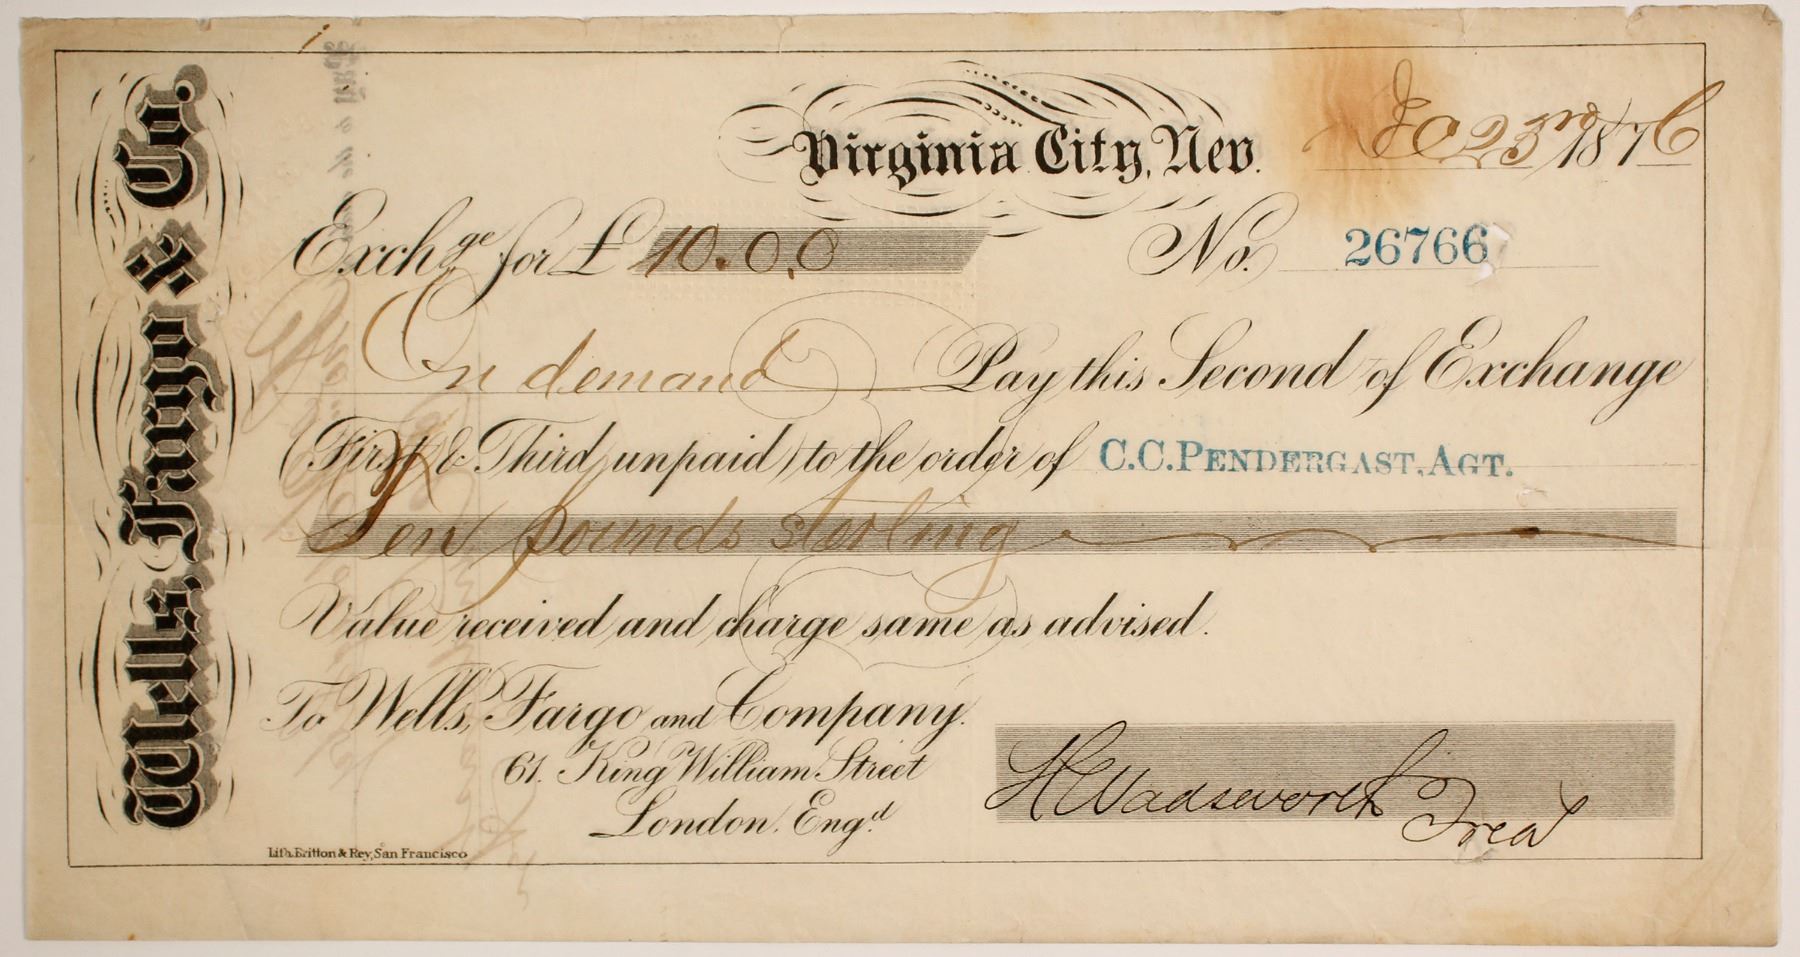 Wells, Fargo & Co.
Virginia City, Nev. 23rd 1876
Exchge for £ 10.0.0 No. 26766
On demand Pay this Second of Exchange
(First & Third unpaid) to the order of C.C. PENDERGAST, AGT.
Ten pounds sterling
Value received and charge same as advised.
To Wells, Fargo and Company.
61. King William Street
London, Engd.
H Wadsworth Trea
Lith. Britton & Rey, San Francisco